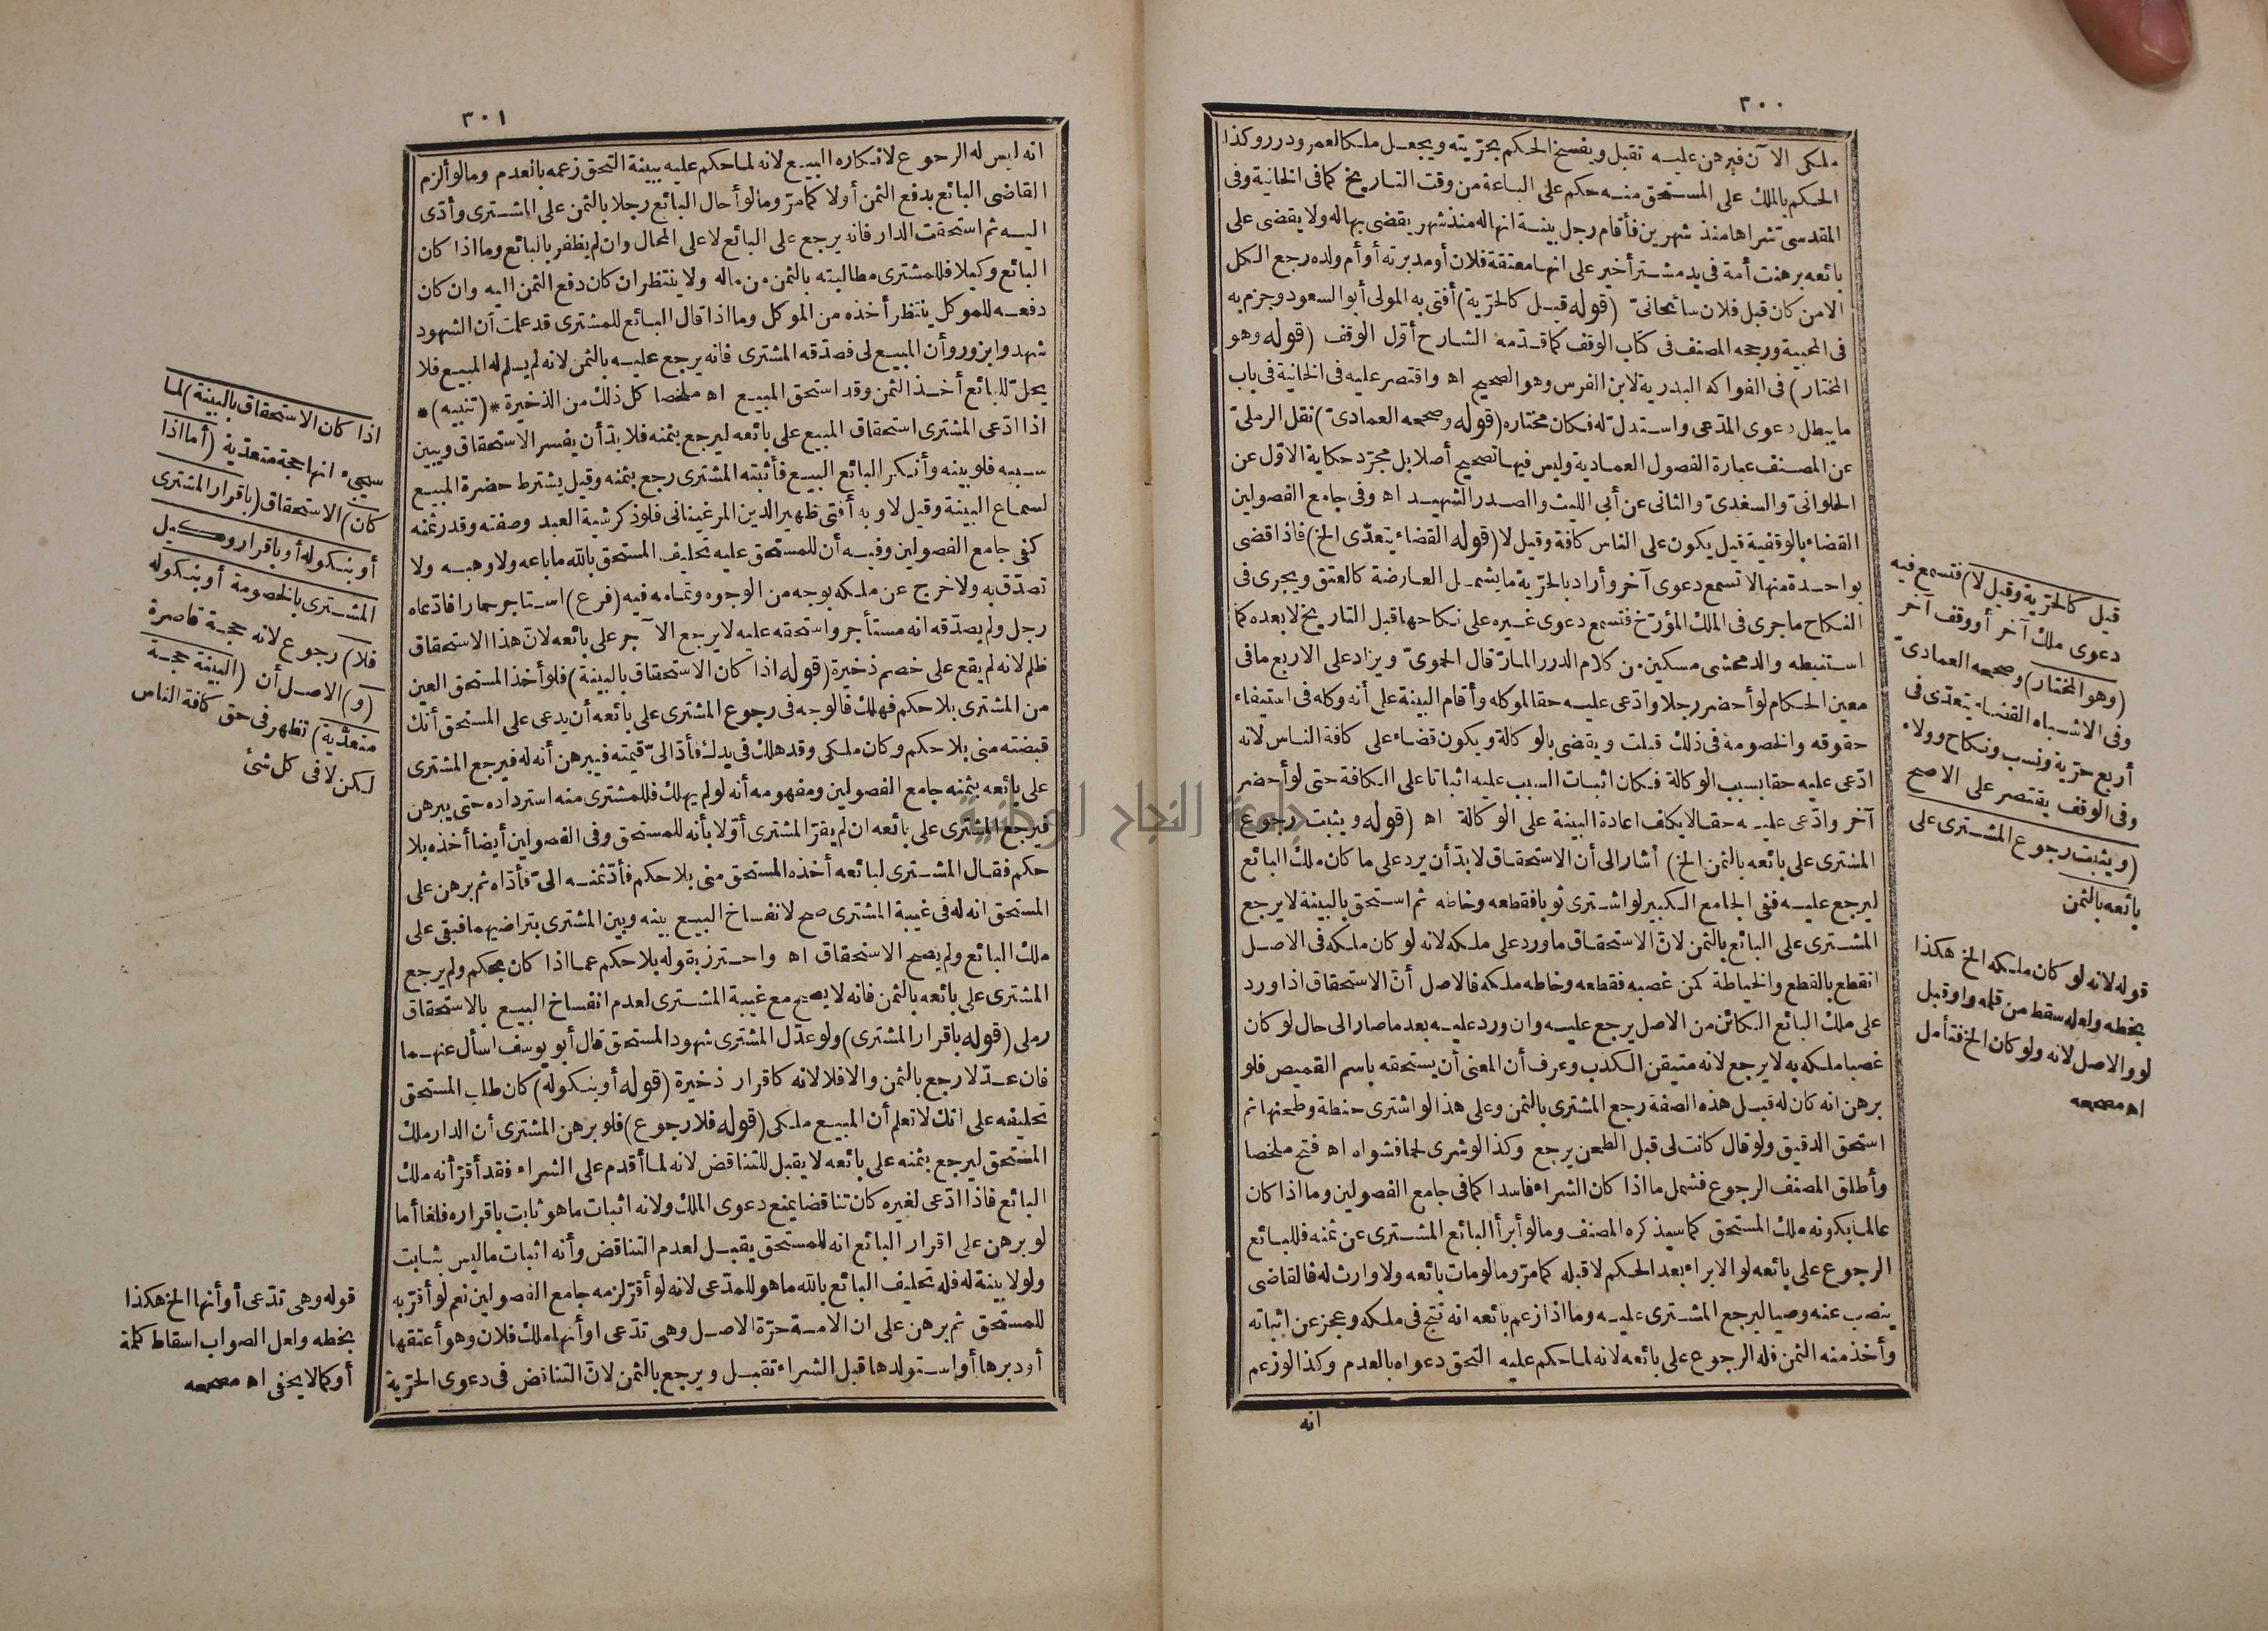 ٣٠٠
ملكى الآن فبرهن عليه تقبل ويفسخ الحكم بحريته ويجعل ملكا لعمرو درر وكذا
الحكم بالملك على المستحق منه حكم على الباعة من وقت التاريخ كما فى الخانية وفى
المقدسى شراها منذ شهرين فأقام رجل بينة انها له منذ شهر يقضى بها له ولا يقضى على
بائعه برهنت أمة فى يد مشتر أخير على انها معتقة فلان أو مدبرته أو أم ولده رجع الكل
الا من كان قبل فلان سائحانىّ (قوله قبل كالحرّية) أفتى به المولى أبو السعود وجزم به
فى المحبية ورجحه المصنف فى كتاب الوقف كما قدّمه الشارح أوّل الوقف (قوله وهو
المختار) فى الفواكه البدرية لابن الفرس وهو الصحيح اه واقتصر عليه فى الخانية فى باب
ما يبطل دعوى المدّعى واستدلّ له فكان مختاره (قوله وصححه العمادىّ) نقل الرملىّ
عن المصنف عبارة الفصول العمادية وليس فيها تصحيح أصلا بل مجرّد حكاية الاوّل عن
الحلوانىّ والسغدىّ والثانى عن أبى الليث والصدر الشهيد اه وفى جامع الفصولين
القضاء بالوقفية قيل يكون على الناس كافة وقيل لا (قوله القضاء يتعدّى الخ) فاذا قضى
بواحدة منها لا تسمع دعوى آخر وأراد بالحرّية ما يشمل العارضة كالعتق ويجرى فى
النكاح ما جرى فى الملك المؤرّخ فتسمع دعوى غيره على نكاحها قبل التاريخ لا بعده كما
استنبطه والد محشى مسكين من كلام الدرر المارّ قال الحموىّ ويزاد على الاربع ما فى
معين الحكام لو أحضر رجلا وادّعى عليه حقا لموكله وأقام البينة على أنه وكله فى استيفاء
حقوقه والخصومة فى ذلك قبلت ويقضى بالوكالة ويكون قضاء على كافة الناس لانه
ادّعى عليه حقا بسبب الوكالة فكان اثبات السبب عليه اثباتا على الكافة حتى لو أحضر
آخر وادّعى عليه حقا لا يكلف اعادة البينة على الوكالة اه (قوله ويثبت رجوع
المشترى على بائعه بالثمن الخ) أشار الى أن الاستحقاق لا بدّ أن يرد على ما كان ملك البائع
ليرجع عليه ففى الجامع الكبير لو اشترى ثوبا فقطعه وخاطه ثم استحق بالبينة لا يرجع
المشترى على البائع بالثمن لانّ الاستحقاق ما ورد على ملكه لانه لو كان ملكه فى الاصل
انقطع بالقطع والخياطة كمن غصبه فقطعه وخاطه ملكه فالاصل أنّ الاستحقاق اذا ورد
على ملك البائع الكائن من الاصل يرجع عليه وان ورد عليه بعد ما صار الى حال لو كان
غصبا ملكه به لا يرجع لانه متيقن الكذب وعرف أن المعنى أن يستحقه باسم القميص فلو
برهن انه كان له قبل هذه الصفة رجع المشترى بالثمن وعلى هذا لو اشترى حنطة وطحنها ثم
استحق الدقيق ولو قال كانت لى قبل الطحن يرجع وكذا لو شرى لحما فشواه اه فتح ملخصا
وأطلق المصنف الرجوع فشمل ما اذا كان الشراء فاسدا كما فى جامع الفصولين وما اذا كان
عالما بكونه ملك المستحق كما سيذكره المصنف وما لو أبرأ البائع المشترى عن ثمنه فللبائع
الرجوع على بائعه لو الابراء بعد الحكم لا قبله كما مرّ وما لو مات بائعه ولا وارث له فالقاضى
ينصب عنه وصيا ليرجع المشترى عليه وما اذا زعم بائعه انه نتج فى ملكه وعجز عن اثباته
وأخذ منه الثمن فله الرجوع على بائعه لانه لما حكم عليه التحق دعواه بالعدم وكذا لو زعم
انه
قبل كالحرّية وقيل لا) فتسمع فيه
دعوى ملك آخر أو وقف آخر
(وهو المختار) وصححه العمادىّ
وفى الاشباه القضاء يتعدّى فى
أربع حرّية ونسب ونكاح وولاء
وفى الوقف يقتصر على الاصح
(ويثبت رجوع المشترى على
بائعه بالثمن
قوله لانه لو كان ملكه الخ هكذا
بخطه ولعله سقط من قلمه واو قبل
لو والاصل لانه ولو كان الخ فتأمل
اه مصححه
٣٠١
انه ليس له الرجوع لانكاره البيع لانه لما حكم عليه ببينة التحق زعمه بالعدم وما لو ألزم
القاضى البائع بدفع الثمن أولا كما مرّ وما لو أحال البائع رجلا بالثمن على المشترى وأدّى
اليه ثم استحقت الدار فانه يرجع على البائع لا على المحال وان لم يظفر بالبائع وما اذا كان
البائع وكيلا فللمشترى مطالبته بالثمن من ماله ولا ينتظر ان كان دفع الثمن اليه وان كان
دفعه للموكل ينتظر أخذه من الموكل وما اذا قال البائع للمشترى قد علمت أن الشهود
شهدوا بزور وأن المبيع لى فصدّقه المشترى فانه يرجع عليه بالثمن لانه لم يسلم له المبيع فلا
يحلّ للبائع أخذ الثمن وقد استحق المبيع اه ملخصا كل ذلك من الذخيرة *(تنبيه)*
اذا ادّعى المشترى استحقاق المبيع على بائعه ليرجع بثمنه فلا بدّ أن يفسر الاستحقاق ويبين
سببه فلو بينه وأنكر البائع البيع فأثبته المشترى رجع بثمنه وقيل يشترط حضرة المبيع
لسماع البينة وقيل لا وبه أفتى ظهير الدين المرغينانى فلو ذكر شية العبد وصفته وقدر ثمنه
كفى جامع الفصولين وفيه أن للمستحق عليه تحليف المستحق بالله ما باعه ولا وهبه ولا
تصدّق به ولا خرج عن ملكه بوجه من الوجوه وتمامه فيه (فرع) استاجر حمارا فادّعاه
رجل ولم يصدّقه انه مستأجر واستحقه عليه لا يرجع الآجر على بائعه لانّ هذا الاستحقاق
ظلم لانه لم يقع على خصم ذخيرة (قوله اذا كان الاستحقاق بالبينة) فلو أخذ المستحق العين
من المشترى بلا حكم فهلك فالوجه فى رجوع المشترى على بائعه أن يدعى على المستحق أنك
قبضته منى بلا حكم وكان ملكى وقد هلك فى يدك فأدّ الىّ قيمته فيبرهن أنه له فيرجع المشترى
على بائعه بثمنه جامع الفصولين ومفهومه أنه لو لم يهلك فللمشترى منه استرداده حتى يبرهن
فيرجع المشترى على بائعه ان لم يقرّ المشترى أوّلا بأنه للمستحق وفى الفصولين أيضا أخذه بلا
حكم فقال المشترى لبائعه أخذه المستحق منى بلا حكم فأدّ ثمنه الىّ فأدّاه ثم برهن على
المستحق انه له فى غيبة المشترى صح لانفساخ البيع بينه وبين المشترى بتراضيهما فبقى على
ملك البائع ولم يصح الاستحقاق اه واحترز بقوله بلا حكم عما اذا كان بحكم ولم يرجع
المشترى على بائعه بالثمن فانه لا يصح مع غيبة المشترى لعدم انفساخ البيع بالاستحقاق
رملى (قوله باقرار المشترى) ولو عدّل المشترى شهود المستحق قال أبو يوسف اسأل عنهما
فان عدّلا رجع بالثمن والا فلا لانه كاقرار ذخيرة (قوله أو بنكوله) كان طلب المستحق
تحليفه على انك لا تعلم أن المبيع ملكى (قوله فلا رجوع) فلو برهن المشترى أن الدار ملك
المستحق ليرجع بثمنه على بائعه لا يقبل للتناقض لانه لما أقدم على الشراء فقد أقرّ أنه ملك
البائع فاذا ادّعى لغيره كان تناقضا يمنع دعوى الملك ولانه اثبات ما هو ثابت باقراره فلغا أما
لو برهن على اقرار البائع انه للمستحق يقبل لعدم التناقض وأنه اثبات ما ليس بثابت
ولو لا بينة له فله تحليف البائع بالله ما هو للمدّعى لانه لو أقرّ لزمه جامع الفصولين نعم لو أقرّ به
للمستحق ثم برهن على ان الامة حرّة الاصل وهى تدّعى أو أنها ملك فلان وهو أعتقها
أو دبرها أو استولدها قبل الشراء تقبل ويرجع بالثمن لانّ التناقض فى دعوى الحرّية
اذا كان الاستحقاق بالبينة) لما
سيجىء انها حجة متعدّية (أما اذا
كان) الاستحقاق (باقرار المشترى
أو بنكوله أو باقرار وكيل
المشترى بالخصومة أو بنكوله
فلا) رجوع لانه حجة قاصرة
(و) الاصل أن (البينة حجة
متعدّية) تظهر فى حق كافة الناس
لكن لا فى كل شئ
قوله وهى تدّعى أو أنها الخ هكذا
بخطه ولعل الصواب اسقاط كلمة
أو كما لا يخفى اه مصححه
جامعة النجاح الوطنية